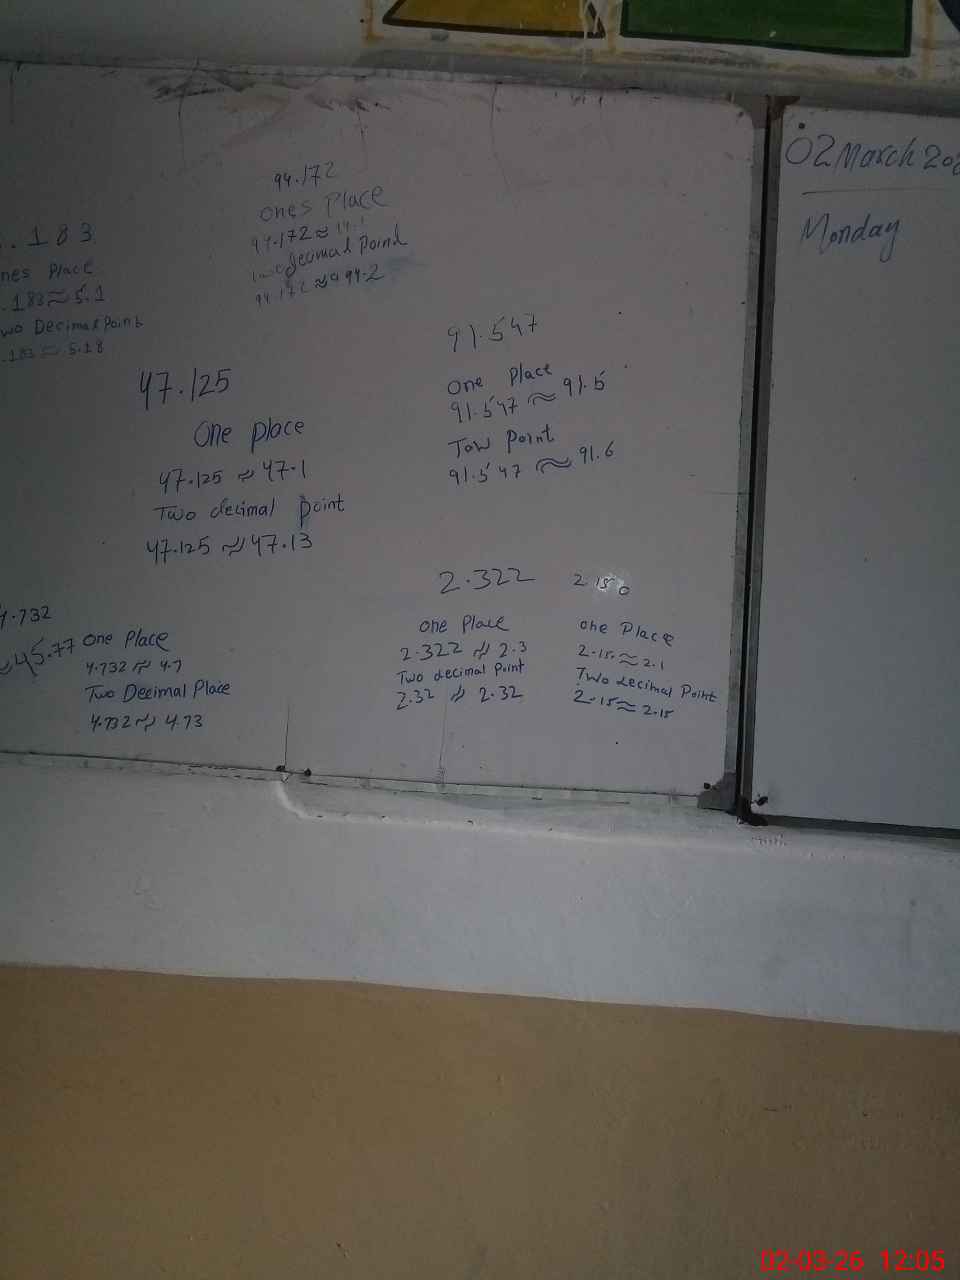 94.172
Ones Place
94.172 ≈
decimal Point
94.172 ≈ 94.2
.183
nes Place
.183 ≈ 5.1
wo Decimal Point
.183 ≈ 5.18
47.125
One place
47.125 ≈ 47.1
Two decimal point
47.125 ≈ 47.13
91.547
One Place
91.547 ≈ 91.5
Tow Point
91.547 ≈ 91.6
4.732
≈45.77
One Place
4.732 ≈ 4.7
Two Decimal Place
4.732 ≈ 4.73
2.322
One Place
2.322 ≈ 2.3
Two decimal Point
2.32 ≈ 2.32
2.150
One Place
2.15. ≈ 2.1
Two decimal Point
2.15 ≈ 2.15
02 March 202
Monday
02-03-26 12:05